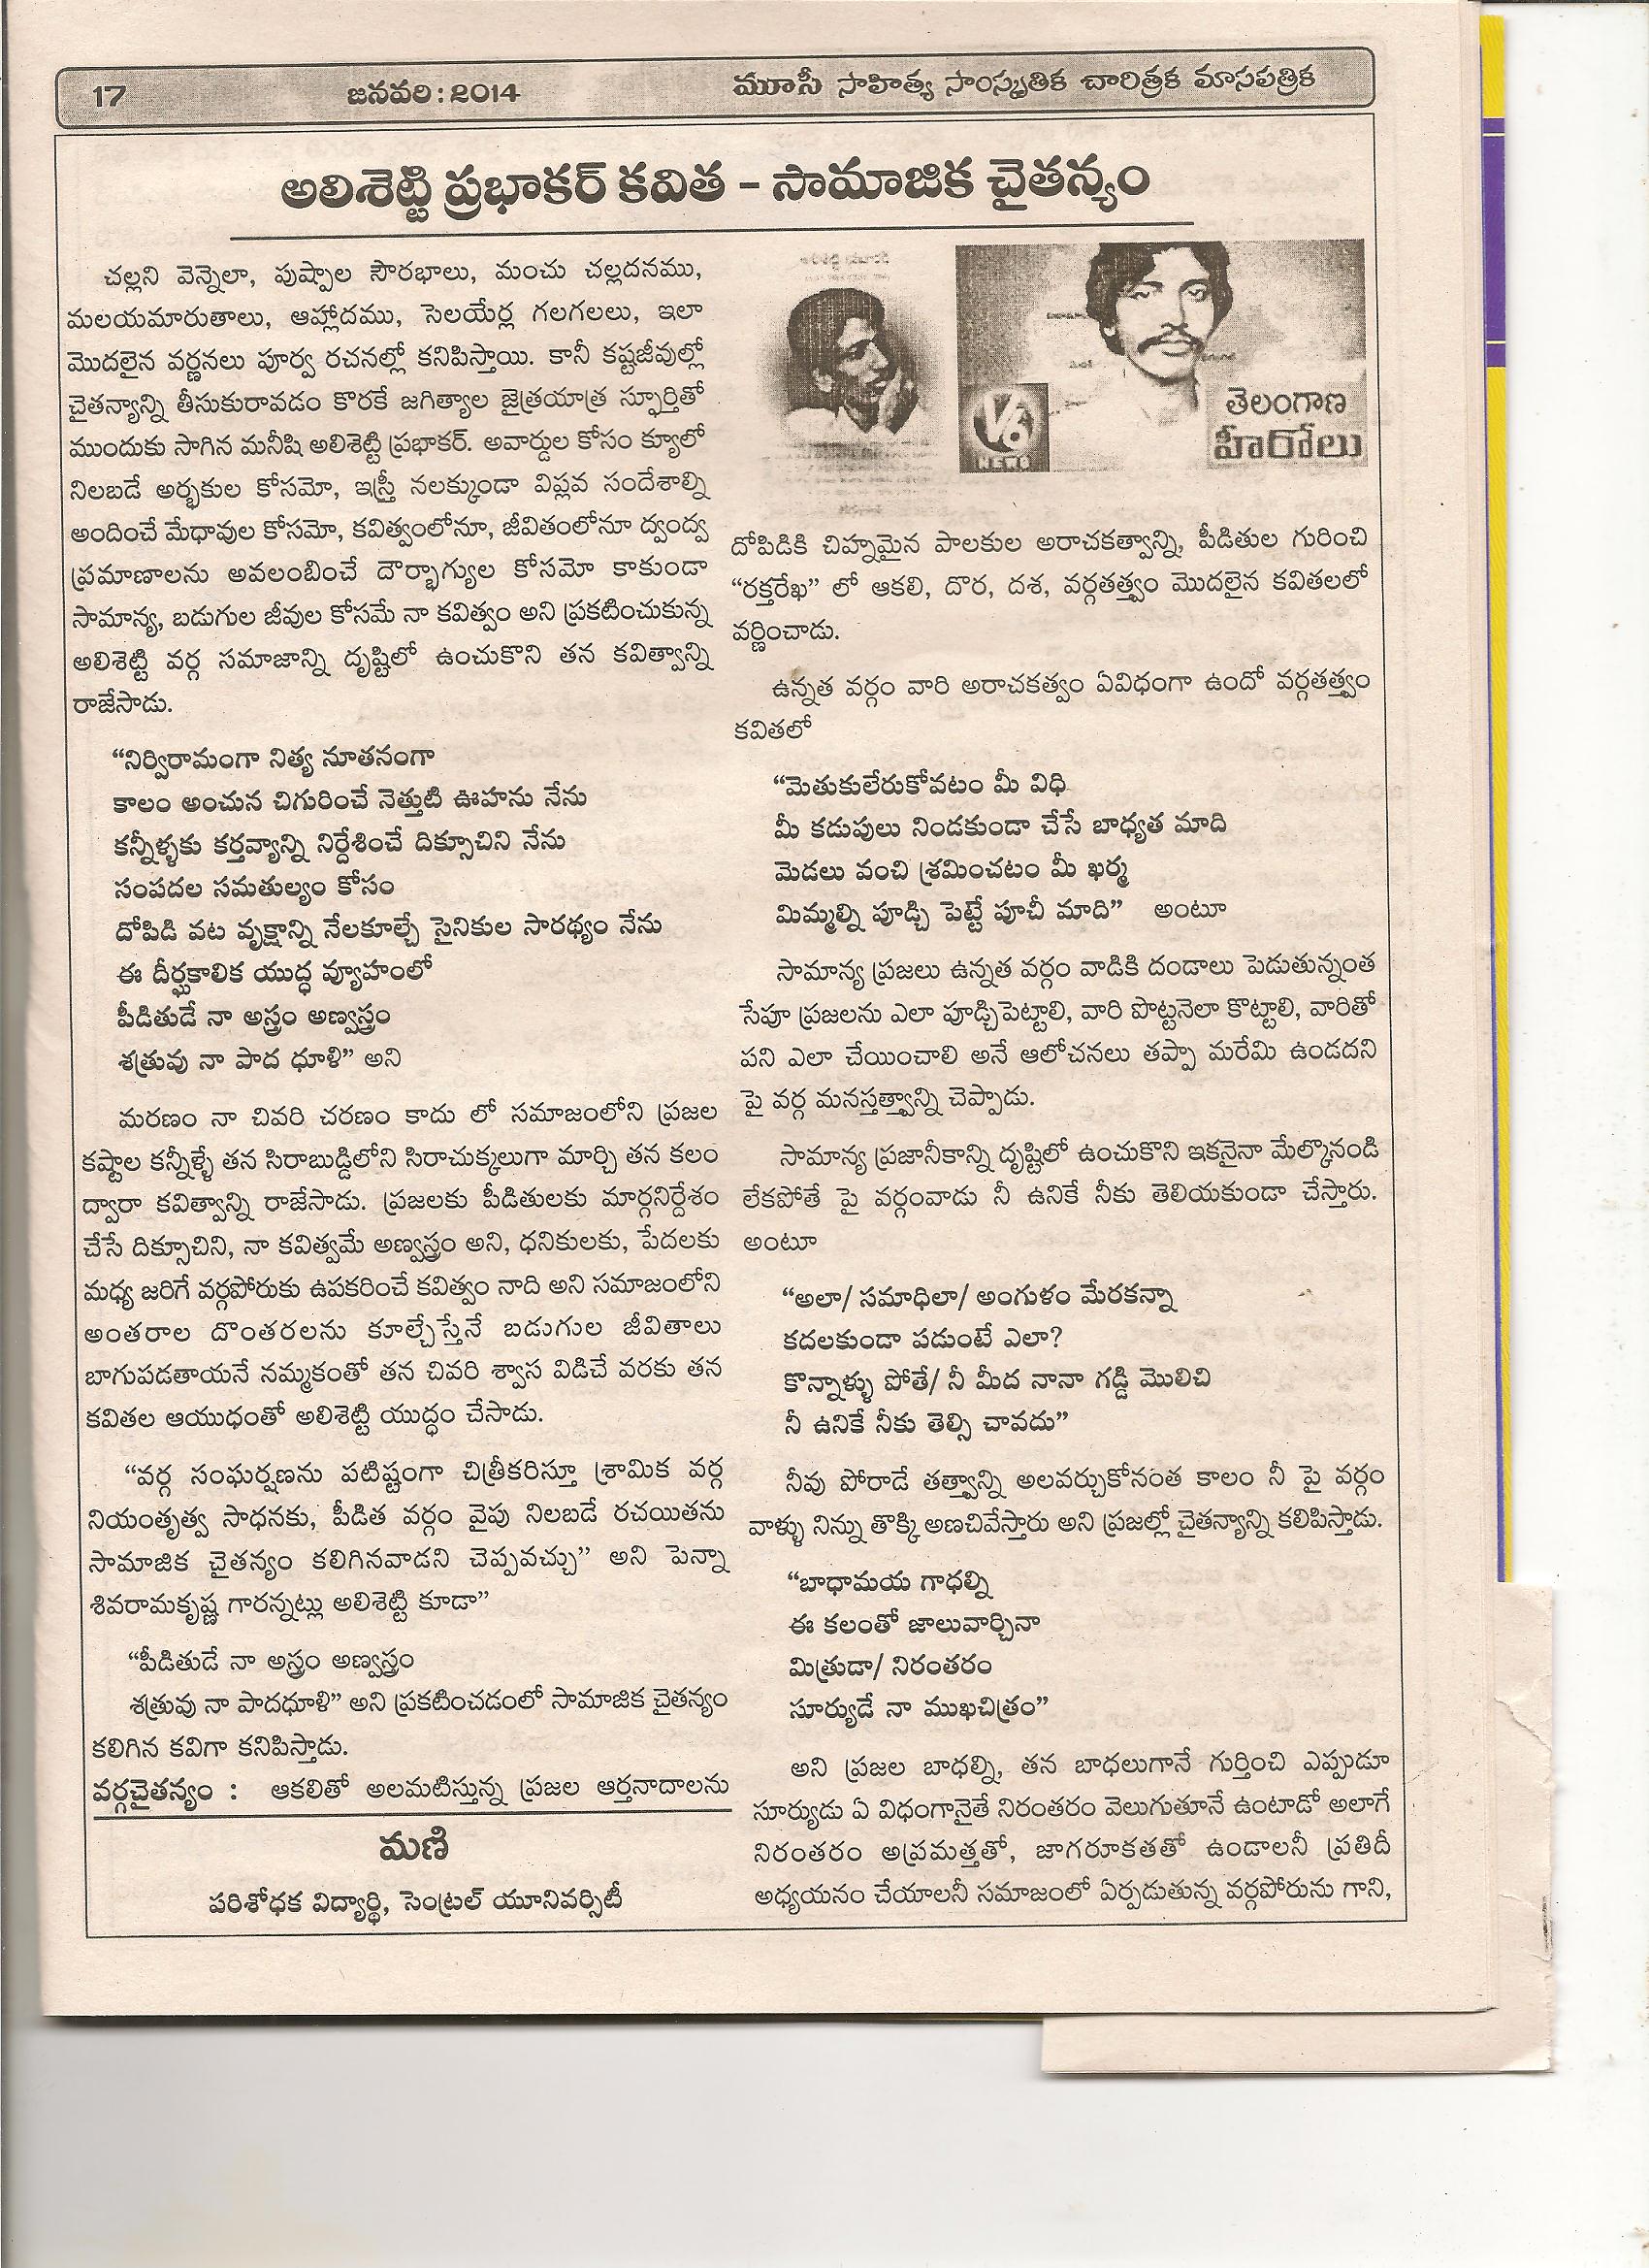 17 జనవరి : 2014 మూసీ సాహిత్య సాంస్కృతిక చారిత్రక మాసపత్రిక
అలిశెట్టి ప్రభాకర్ కవిత - సామాజిక చైతన్యం
చల్లని వెన్నెలా, పుష్పాల సౌరభాలు, మంచు చల్లదనము,
మలయమారుతాలు, ఆహ్లాదము, సెలయేర్ల గలగలలు, ఇలా
మొదలైన వర్ణనలు పూర్వ రచనల్లో కనిపిస్తాయి. కానీ కష్టజీవుల్లో
చైతన్యాన్ని తీసుకురావడం కొరకే జగిత్యాల జైత్రయాత్ర స్ఫూర్తితో
ముందుకు సాగిన మనీషి అలిశెట్టి ప్రభాకర్. అవార్డుల కోసం క్యూలో
నిలబడే అర్భకుల కోసమో, ఇస్త్రీ నలక్కుండా విప్లవ సందేశాల్ని
అందించే మేధావుల కోసమో, కవిత్వంలోనూ, జీవితంలోనూ ద్వంద్వ
ప్రమాణాలను అవలంబించే దౌర్భాగ్యుల కోసమో కాకుండా
సామాన్య, బడుగుల జీవుల కోసమే నా కవిత్వం అని ప్రకటించుకున్న
అలిశెట్టి వర్గ సమాజాన్ని దృష్టిలో ఉంచుకొని తన కవిత్వాన్ని
రాజేసాడు.
“నిర్విరామంగా నిత్య నూతనంగా
కాలం అంచున చిగురించే నెత్తుటి ఊహను నేను
కన్నీళ్ళకు కర్తవ్యాన్ని నిర్దేశించే దిక్సూచిని నేను
సంపదల సమతుల్యం కోసం
దోపిడి వట వృక్షాన్ని నేలకూల్చే సైనికుల సారథ్యం నేను
ఈ దీర్ఘకాలిక యుద్ధ వ్యూహంలో
పీడితుడే నా అస్త్రం అణ్వస్త్రం
శత్రువు నా పాద ధూళి” అని
మరణం నా చివరి చరణం కాదు లో సమాజంలోని ప్రజల
కష్టాల కన్నీళ్ళే తన సిరాబుడ్డిలోని సిరాచుక్కలుగా మార్చి తన కలం
ద్వారా కవిత్వాన్ని రాజేసాడు. ప్రజలకు పీడితులకు మార్గనిర్దేశం
చేసే దిక్సూచిని, నా కవిత్వమే అణ్వస్త్రం అని, ధనికులకు, పేదలకు
మధ్య జరిగే వర్గపోరుకు ఉపకరించే కవిత్వం నాది అని సమాజంలోని
అంతరాల దొంతరలను కూల్చేస్తేనే బడుగుల జీవితాలు
బాగుపడతాయనే నమ్మకంతో తన చివరి శ్వాస విడిచే వరకు తన
కవితల ఆయుధంతో అలిశెట్టి యుద్ధం చేసాడు.
“వర్గ సంఘర్షణను పటిష్టంగా చిత్రీకరిస్తూ శ్రామిక వర్గ
నియంతృత్వ సాధనకు, పీడిత వర్గం వైపు నిలబడే రచయితను
సామాజిక చైతన్యం కలిగినవాడని చెప్పవచ్చు” అని పెన్నా
శివరామకృష్ణ గారన్నట్లు అలిశెట్టి కూడా”
“పీడితుడే నా అస్త్రం అణ్వస్త్రం
శత్రువు నా పాదధూళి” అని ప్రకటించడంలో సామాజిక చైతన్యం
కలిగిన కవిగా కనిపిస్తాడు.
వర్గచైతన్యం : ఆకలితో అలమటిస్తున్న ప్రజల ఆర్తనాదాలను
మణి
పరిశోధక విద్యార్థి, సెంట్రల్ యూనివర్సిటీ
V6
NEWS
తెలంగాణ
హీరోలు
దోపిడికి చిహ్నమైన పాలకుల అరాచకత్వాన్ని, పీడితుల గురించి
“రక్తరేఖ” లో ఆకలి, దొర, దశ, వర్గతత్త్వం మొదలైన కవితలలో
వర్ణించాడు.
ఉన్నత వర్గం వారి అరాచకత్వం ఏవిధంగా ఉందో వర్గతత్త్వం
కవితలో
“మెతుకులేరుకోవటం మీ విధి
మీ కడుపులు నిండకుండా చేసే బాధ్యత మాది
మెడలు వంచి శ్రమించటం మీ ఖర్మ
మిమ్మల్ని పూడ్చి పెట్టే పూచీ మాది” అంటూ
సామాన్య ప్రజలు ఉన్నత వర్గం వాడికి దండాలు పెడుతున్నంత
సేపూ ప్రజలను ఎలా పూడ్చిపెట్టాలి, వారి పొట్టనెలా కొట్టాలి, వారితో
పని ఎలా చేయించాలి అనే ఆలోచనలు తప్పా మరేమి ఉండదని
పై వర్గ మనస్తత్త్వాన్ని చెప్పాడు.
సామాన్య ప్రజానీకాన్ని దృష్టిలో ఉంచుకొని ఇకనైనా మేల్కొనండి
లేకపోతే పై వర్గంవాడు నీ ఉనికే నీకు తెలియకుండా చేస్తారు.
అంటూ
“అలా/ సమాధిలా/ అంగుళం మేరకన్నా
కదలకుండా పడుంటే ఎలా?
కొన్నాళ్ళు పోతే/ నీ మీద నానా గడ్డి మొలిచి
నీ ఉనికే నీకు తెల్సి చావదు”
నీవు పోరాడే తత్త్వాన్ని అలవర్చుకోనంత కాలం నీ పై వర్గం
వాళ్ళు నిన్ను తొక్కి అణచివేస్తారు అని ప్రజల్లో చైతన్యాన్ని కలిపిస్తాడు.
“బాధామయ గాధల్ని
ఈ కలంతో జాలువార్చినా
మిత్రుడా/ నిరంతరం
సూర్యుడే నా ముఖచిత్రం”
అని ప్రజల బాధల్ని, తన బాధలుగానే గుర్తించి ఎప్పుడూ
సూర్యుడు ఏ విధంగానైతే నిరంతరం వెలుగుతూనే ఉంటాడో అలాగే
నిరంతరం అప్రమత్తతో, జాగరూకతతో ఉండాలనీ ప్రతిదీ
అధ్యయనం చేయాలనీ సమాజంలో ఏర్పడుతున్న వర్గపోరును గాని,